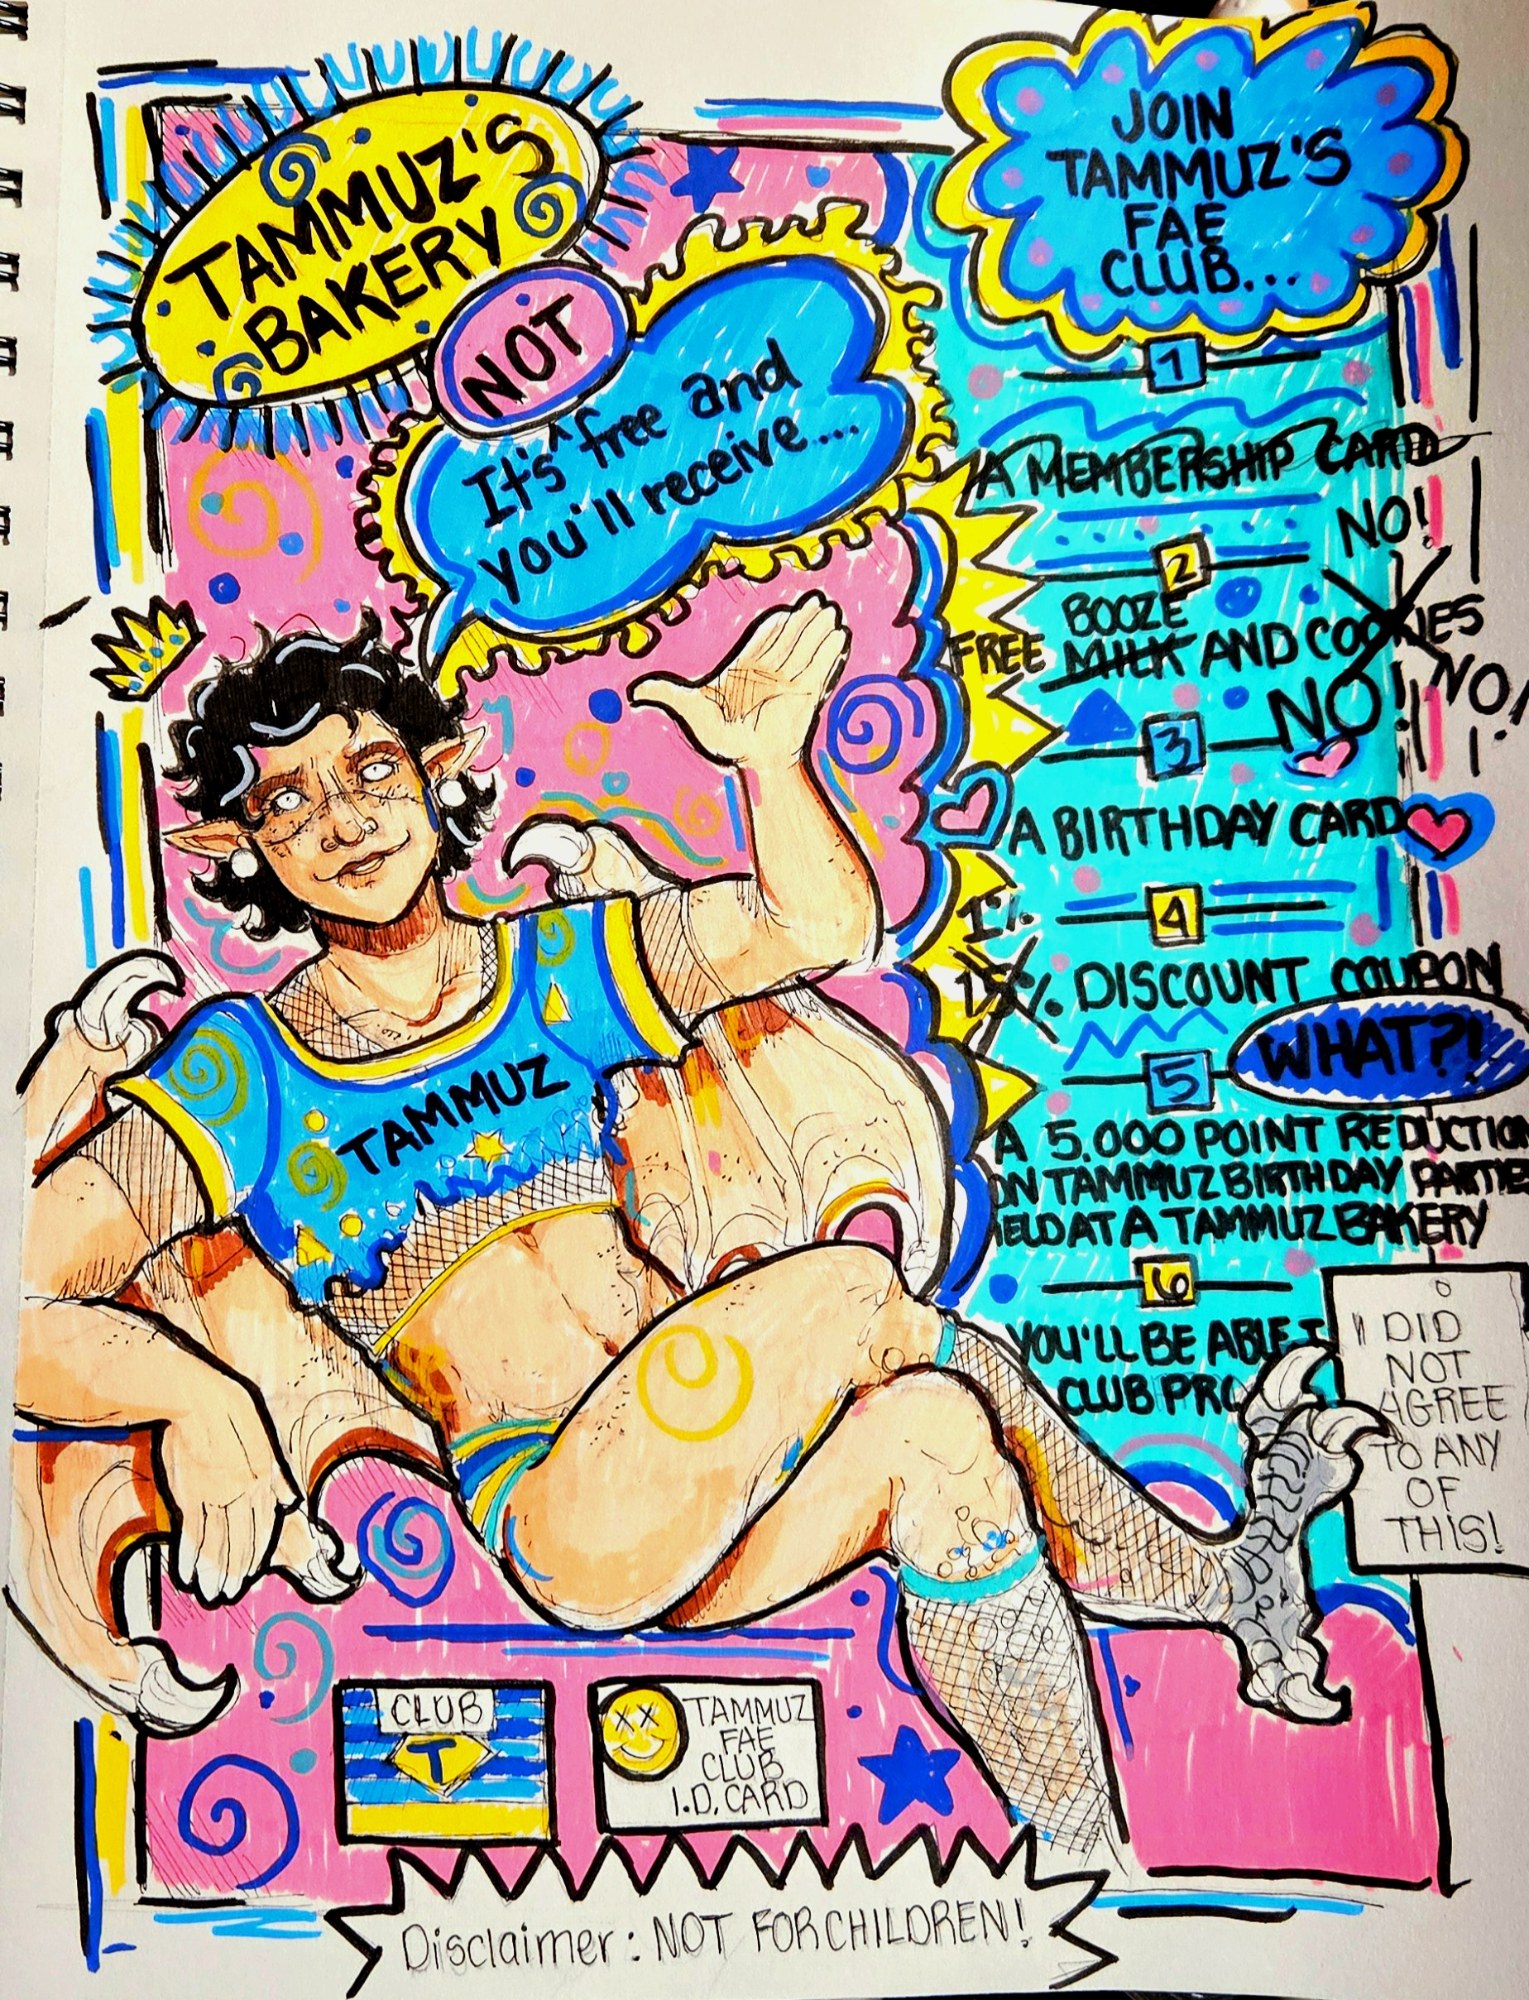 TAMMUZ'S
BAKERY
NOT
It's ^ free and
you'll receive....
JOIN
TAMMUZ'S
FAE
CLUB...
1
A MEMBERSHIP CARD
NO!
2
BOOZE
FREE MILK AND COOKIES
NO!
NO!
3
A BIRTHDAY CARD
4
1%
15% DISCOUNT COUPON
WHAT?!
5
A 5.000 POINT REDUCTION
ON TAMMUZ BIRTHDAY PARTIES
HELD AT A TAMMUZ BAKERY
6
YOU'LL BE ABLE T
CLUB PRO
I DID
NOT
AGREE
TO ANY
OF
THIS!
TAMMUZ
CLUB
T
TAMMUZ
FAE
CLUB
I.D. CARD
Disclaimer: NOT FOR CHILDREN!